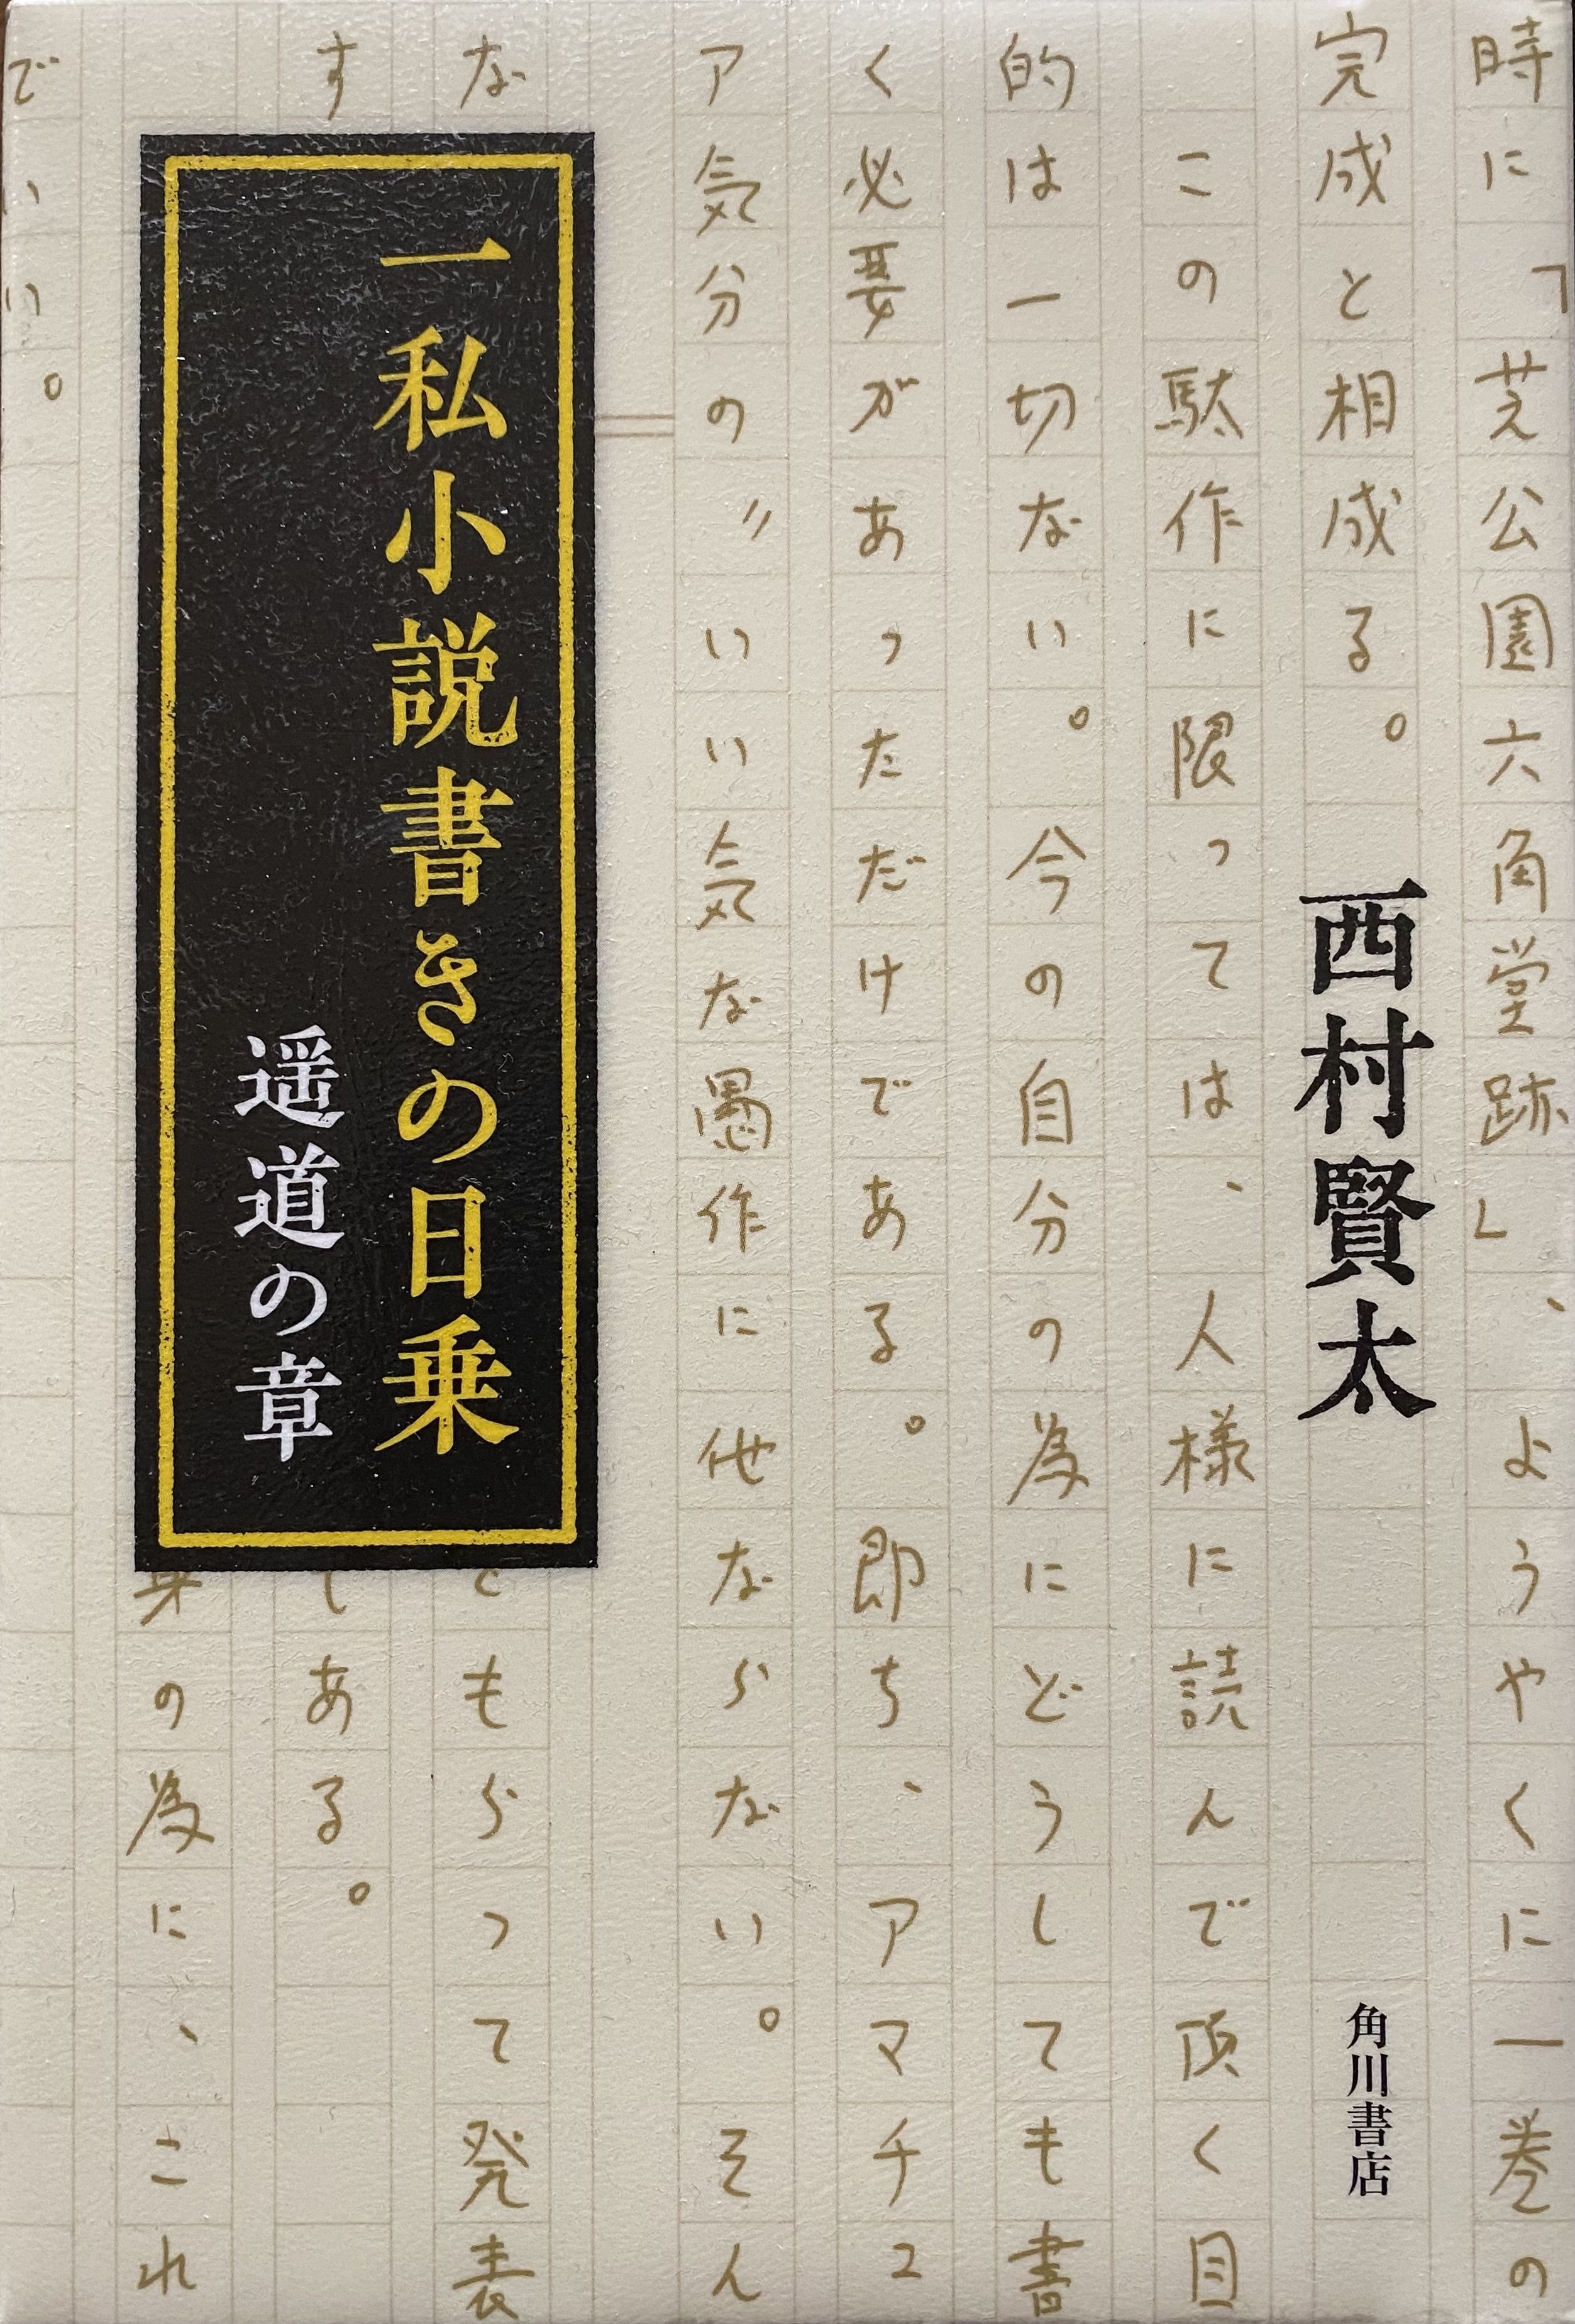 時に「芝公園六角堂跡」、ようやくに一巻の
完成と相成る。
西村賢太
角川書店
この駄作に限っては、人様に読んで頂く目
的は一切ない。今の自分の為にどうしても書
く必要があっただけである。即ち、アマチュ
ア気分の〝いい気な愚作に他ならない。そん
な
ともらって発表
す
してある。
の為に、これ
でいい。
一私小説書きの日乗
遥道の章